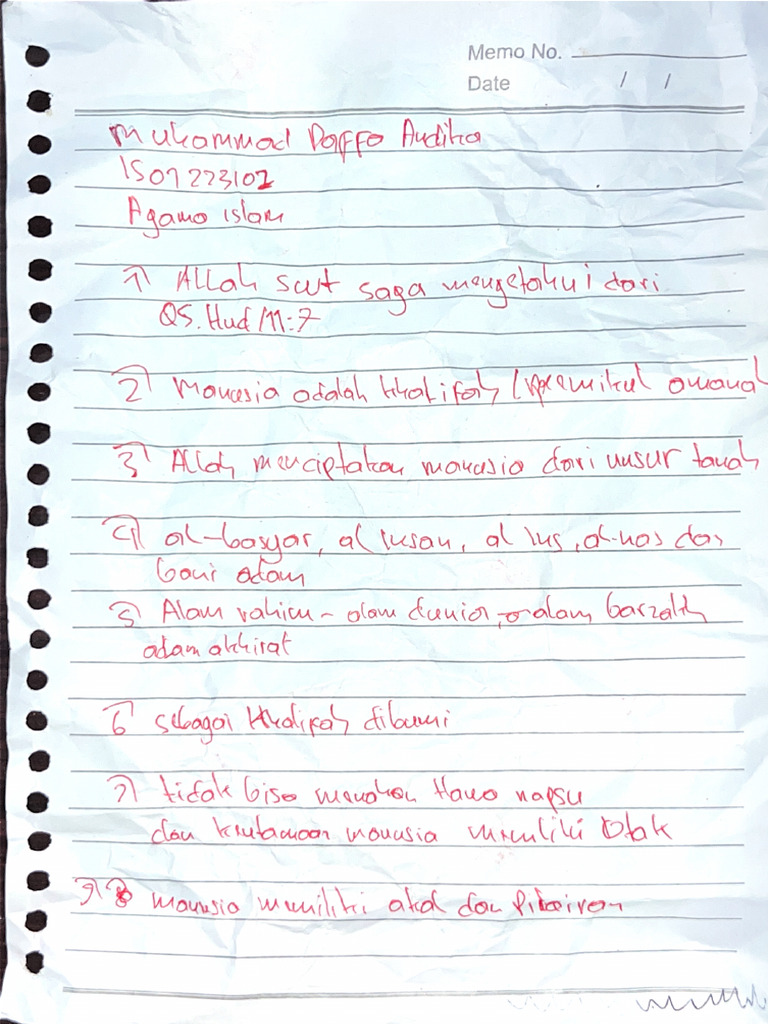 Memo No.
Date / /
Muhammad Daffa Andika
1507223102
Agama islam
1) Allah swt saga mengetahui dari
QS. Hud /11:7
2) Manusia adalah khalifah / pemikul amanah
3) Allah menciptakan manusia dari unsur tanah
4) al-basyar, al insan, al ins, al-nas dan
bani adam
5) Alam rahim - alam dunia, - alam barzakh
adam akhirat
6) sebagai khalifah dibumi
7) tidak bisa menahan hawa napsu
dan keutamaan manusia memiliki otak
9) 8 manusia memiliki akal dan pikiran